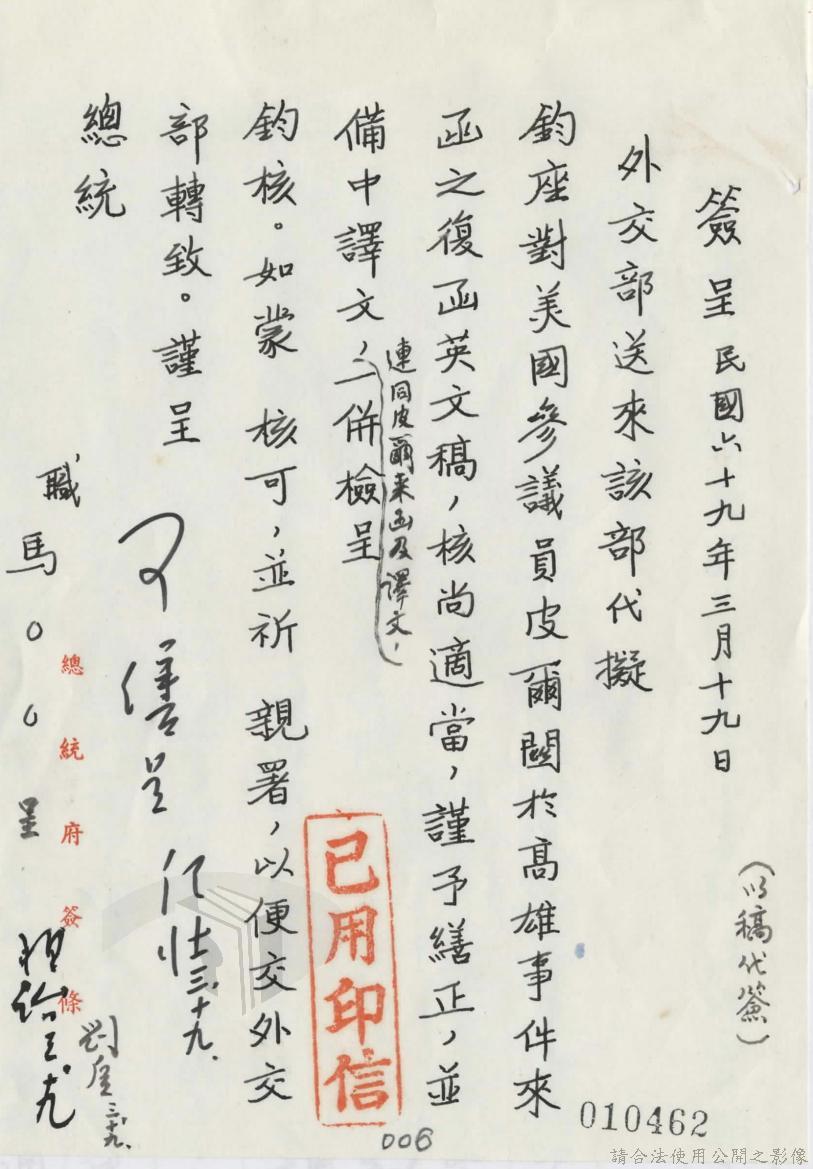 簽呈 民國六十九年三月十九日
(以稿代簽)
外交部送來該部代擬
鈞座對美國參議員皮爾關於高雄事件來
函之復函英文稿,核尚適當,謹予繕正,並
備中譯文,連同皮爾來函及譯文,一併檢呈
鈞核。如蒙 核可,並祈 親署,以便交外交
部轉致。謹呈
總統
職 馬○○呈
繕呈
三.十九.
三.十九.
總統府簽條
已用印信
010462
006
請合法使用公開之影像